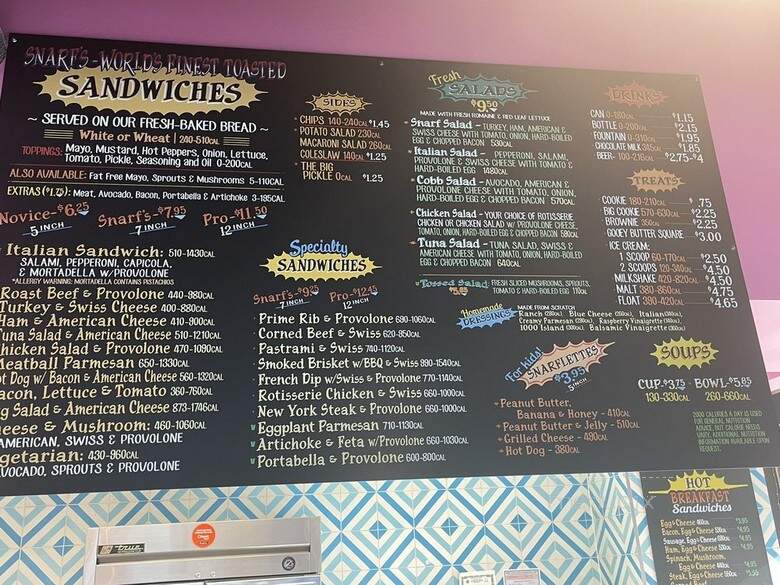 SNARF'S - WORLD'S FINEST TOASTED
SANDWICHES
~ SERVED ON OUR FRESH-BAKED BREAD ~
White or Wheat | 240-510CAL
TOPPINGS: Mayo, Mustard, Hot Peppers, Onion, Lettuce,
Tomato, Pickle, Seasoning and Oil 0-200CAL
ALSO AVAILABLE: Fat Free Mayo, Sprouts & Mushrooms 5-110CAL
EXTRAS ($1.75): Meat, Avocado, Bacon, Portabella & Artichoke 3-195CAL
Novice-$6.25 Snarf's-$7.95 Pro-$11.50
5 INCH 7 INCH 12 INCH
Italian Sandwich: 510-1430CAL
SALAMI, PEPPERONI, CAPICOLA,
& MORTADELLA w/PROVOLONE
*ALLERGY WARNING: MORTADELLA CONTAINS PISTACHIOS
Roast Beef & Provolone 440-980CAL
Turkey & Swiss Cheese 400-880CAL
Ham & American Cheese 410-900CAL
Tuna Salad & American Cheese 510-1210CAL
Chicken Salad & Provolone 470-1090CAL
Meatball Parmesan 650-1330CAL
ot Dog w/ Bacon & American Cheese 560-1320CAL
acon, Lettuce & Tomato 360-760CAL
gg Salad & American Cheese 873-1746CAL
heese & Mushroom: 460-1060CAL
AMERICAN, SWISS & PROVOLONE
getarian: 430-960CAL
AVOCADO, SPROUTS & PROVOLONE
SIDES
CHIPS 140-240CAL $1.45
POTATO SALAD 230CAL
MACARONI SALAD 260CAL
COLESLAW 140CAL $1.25
THE BIG
PICKLE 0CAL $1.25
Specialty
SANDWICHES
Snarf's-$9.25 Pro-$12.45
7 INCH 12 INCH
Prime Rib & Provolone 690-1060CAL
Corned Beef & Swiss 620-850CAL
Pastrami & Swiss 740-1120CAL
Smoked Brisket w/BBQ & Swiss 890-1540CAL
French Dip w/Swiss & Provolone 770-1140CAL
Rotisserie Chicken & Swiss 660-1000CAL
New York Steak & Provolone 660-1000CAL
Eggplant Parmesan 710-1130CAL
Artichoke & Feta w/Provolone 660-1030CAL
Portabella & Provolone 600-800CAL
Fresh
SALADS
$9.50
MADE WITH FRESH ROMAINE & RED LEAF LETTUCE
Snarf Salad - TURKEY, HAM, AMERICAN &
SWISS CHEESE WITH TOMATO, ONION, HARD-BOILED
EGG & CHOPPED BACON 530CAL
Italian Salad - PEPPERONI, SALAMI,
PROVOLONE & SWISS CHEESE WITH TOMATO &
HARD-BOILED EGG 1480CAL
Cobb Salad - AVOCADO, AMERICAN &
PROVOLONE CHEESE WITH TOMATO, ONION,
HARD-BOILED EGG & CHOPPED BACON 570CAL
Chicken Salad - YOUR CHOICE OF ROTISSERIE
CHICKEN OR CHICKEN SALAD W/ PROVOLONE CHEESE,
TOMATO, ONION, HARD-BOILED EGG & CHOPPED BACON
Tuna Salad - TUNA SALAD, SWISS &
AMERICAN CHEESE WITH TOMATO, ONION, HARD-BOILED
EGG & CHOPPED BACON 640CAL
Tossed Salad: FRESH SLICED MUSHROOMS, SPROUTS,
TOMATO & HARD-BOILED EGG 110CAL
Homemade
DRESSINGS
MADE FROM SCRATCH
Ranch Blue Cheese Italian
Creamy Parmesan Raspberry Vinaigrette
1000 Island Balsamic Vinaigrette
For kids!
SNARFLETTES
$3.95
5 INCH
Peanut Butter,
Banana & Honey - 410CAL
Peanut Butter & Jelly - 510CAL
Grilled Cheese - 430CAL
Hot Dog - 380CAL
DRINKS
CAN 0-180CAL $1.15
BOTTLE 0-200CAL $2.15
FOUNTAIN 0-310CAL $1.95
CHOCOLATE MILK 345CAL $1.85
BEER- 100-216CAL $2.75-$4
TREATS
COOKIE 180-210CAL $.75
BIG COOKIE 570-630CAL $2.25
BROWNIE 350CAL $2.25
GOOEY BUTTER SQUARE $3.00
ICE CREAM:
1 SCOOP 60-170CAL $2.50
2 SCOOPS 120-340CAL $4.50
MILKSHAKE 420-820CAL $4.50
MALT 380-860CAL $4.75
FLOAT 380-420CAL $4.65
SOUPS
CUP-$3.75 - BOWL-$5.85
130-330CAL 260-660CAL
2000 CALORIES A DAY IS USED
FOR GENERAL NUTRITION
ADVICE, BUT CALORIE NEEDS
VARY. ADDITIONAL NUTRITION
INFORMATION AVAILABLE UPON
REQUEST.
HOT
BREAKFAST
Sandwiches
Egg & Cheese $3.95
Bacon, Egg & Cheese $4.95
Sausage, Egg & Cheese $4.95
Ham, Egg & Cheese $4.95
Spinach, Mushroom,
Egg & Cheese $4.95
Steak, Egg & Cheese
true